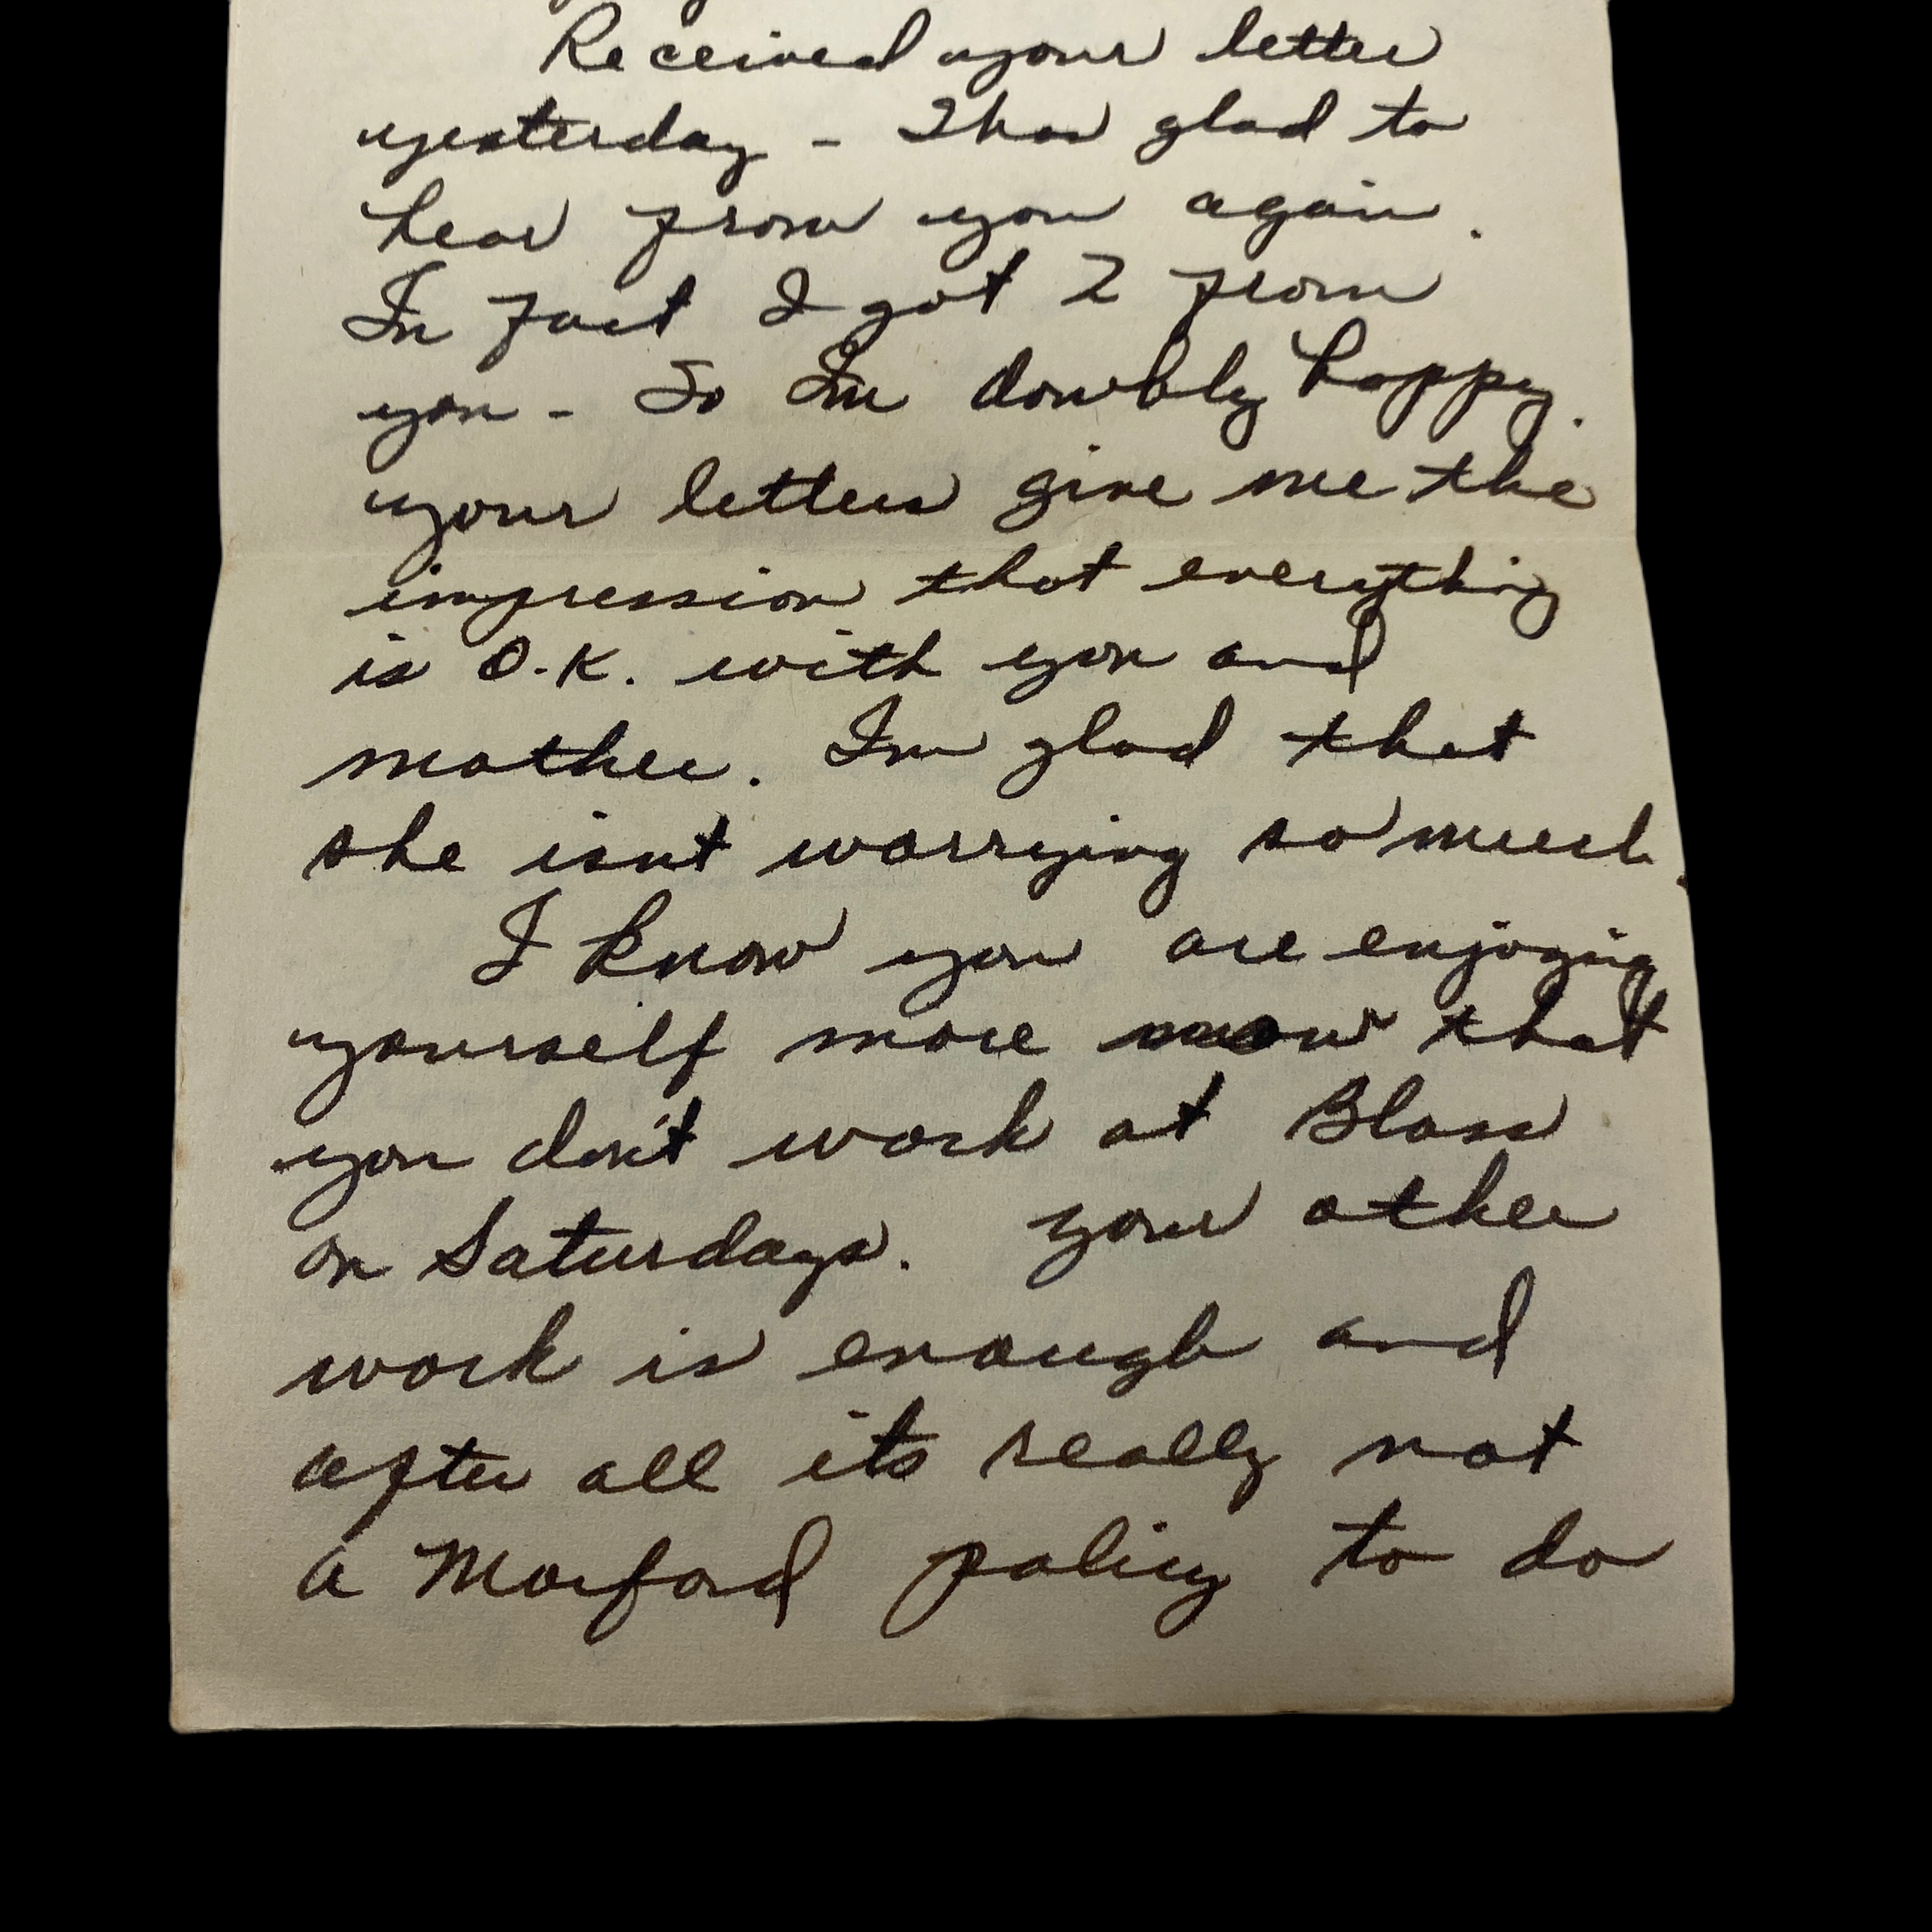 Received your letter
yesterday - Was glad to
hear from you again.
In fact I got 2 from
you - So Im doubly happy.
your letters give me the
impression that everything
is O.K. with you and
mother. Im glad that
she isnt worrying so much.
I know you are enjoying
yourself more now that
you don't work at Blass
on Saturdays. your other
work is enough and
after all its really not
a Morford policy to do